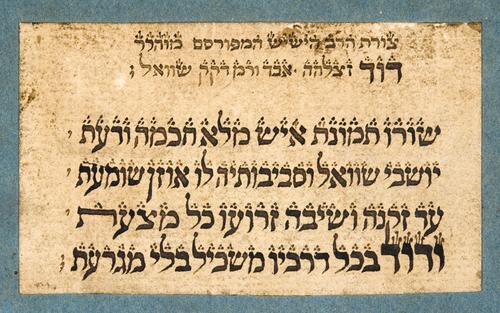 צורת הרב הישיש המפורסם כמוהרר
דוד זצללהה אבד ורמ דקק שוואל
שורו תמונת איש מלא חכמה ודעת
יושבי שוואל וסביבותיה לו אוזן שומעת
עד זקנה ושיבה זרועו כל מצעת
ודוד בכל דרכיו משכיל בלי מגרעת